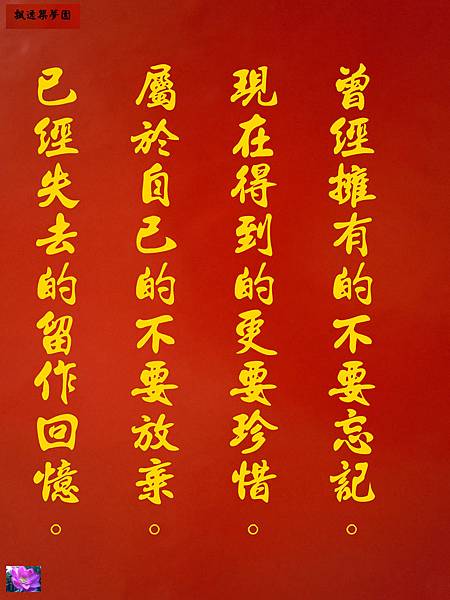 飄逸築夢園
曾經擁有的不要忘記。
現在得到的更要珍惜。
屬於自己的不要放棄。
已經失去的留作回憶。